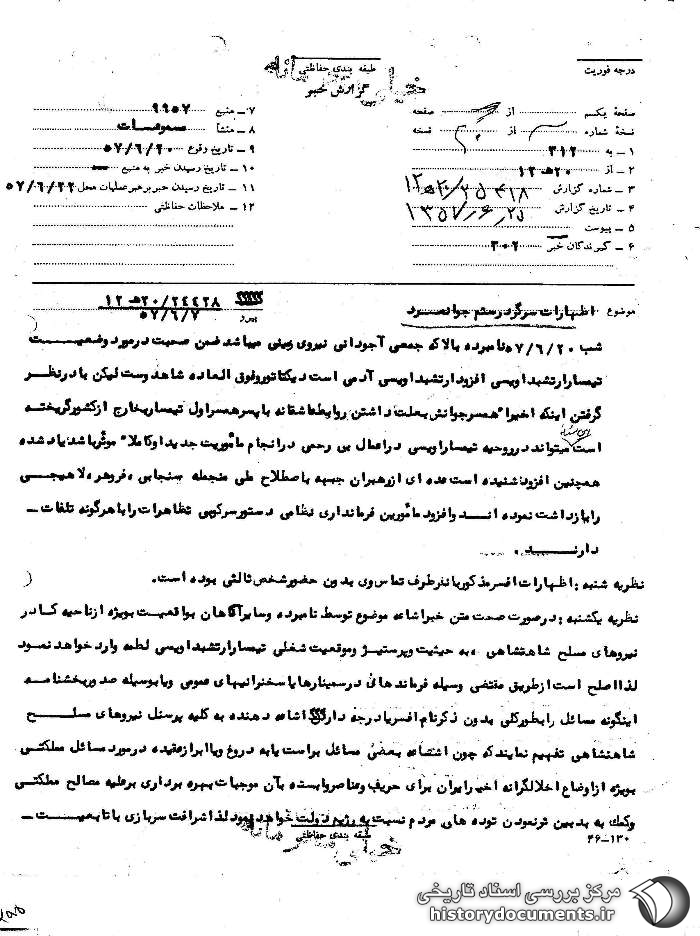 درجه فوریت
طبقه بندی حفاظتی
خیلی محرمانه
گزارش خبر
صفحهٔ یکم از صفحه
نسخهٔ شماره از نسخه
۱ – به ۳۱۲
۲ – از ۲۰ ه ۱۲
۳ – شماره گزارش
۴ – تاریخ گزارش
۵ – پیوست
۶ – گیرندگان خبر ۳۰۲
۷ – منبع ۹۹۵۷
۸ – منشأ
۹ – تاریخ وقوع ۵۷/۶/۲۰
۱۰ – تاریخ رسیدن خبر به منبع
۱۱ – تاریخ رسیدن خبر برهبر عملیات محل ۵۷/۶/۲۲
۱۲ – ملاحظات حفاظتی
موضوع اظهارات سرگرد رستم جوانمرد
۲۴۴۲۸/۲۰ ه ۱۲
پیرو ۵۷/۶/۷
شب ۵۷/۶/۲۰ نامبرده بالا که جمعی آجودانی نیروی زمینی میباشد ضمن صحبت در مورد وضعیت
تیمسار ارتشبد اویسی افزود ارتشبد اویسی آدمی است دیکتاتور و فوق العاده شاهدوست لیکن با در نظر
گرفتن اینکه اخیرا" همسر جوانش بعلت داشتن روابط عاشقانه با پسر همسر اول تیمسار بخارج از کشور گریخته
است این مسئله میتواند در روحیه تیمسار اویسی در اعمال بی رحمی در انجام مأموریت جدید او کاملا" موثر باشد یاد شده
همچنین افزود شنیده است عده ای از رهبران جبهه باصطلاح ملی منجمله سنجابی ، فروهر ، لاهیجی
را بازداشت نموده اند و افزود مأمورین فرمانداری نظامی دستور سرکوبی تظاهرات را با هرگونه تلفات –
دارند .
نظریه شنبه : اظهارات افسر مذکور با نظر طرف تماس وی بدون حضور شخص ثالثی بوده است .
نظریه یکشنبه : در صورت صحت متن خبر اشاعه موضوع توسط نامبرده و سایر آگاهان بواقعیت بویژه از ناحیه کادر
نیروهای مسلح شاهنشاهی ، به حیثیت و پرستیژ و موقعیت شغلی تیمسار ارتشبد اویسی لطمه وارد خواهد نمود
لذا اصلح است از طریق مقتضی وسیله فرماندهانی در سمینارها یا سخنرانیهای عمومی و یا بوسیله صدور بخشنامه
اینگونه مسائل را بطور کلی بدون ذکر نام افسر یا درجه دار اشاعه دهنده به کلیه پرسنل نیروهای مسلح
شاهنشاهی تفهیم نمایند که چون اشاعه بعضی مسائل براست یا به دروغ و یا ابراز عقیده در مورد مسائل مملکتی
بویژه از اوضاع اخلالگرانه اخیر ایران برای حریف و عناصر وابسته بآن موجبات بهره برداری بر علیه مصالح مملکتی
و کمک به بدبین تر نمودن توده های مردم نسبت به رژیم و دولت خواهد بود لذا شرافت سربازی با تابعیت –
۴۶–۱۳۰
طبقه بندی حفاظتی
خیلی محرمانه
مرکز بررسی اسناد تاریخی
historydocuments.ir